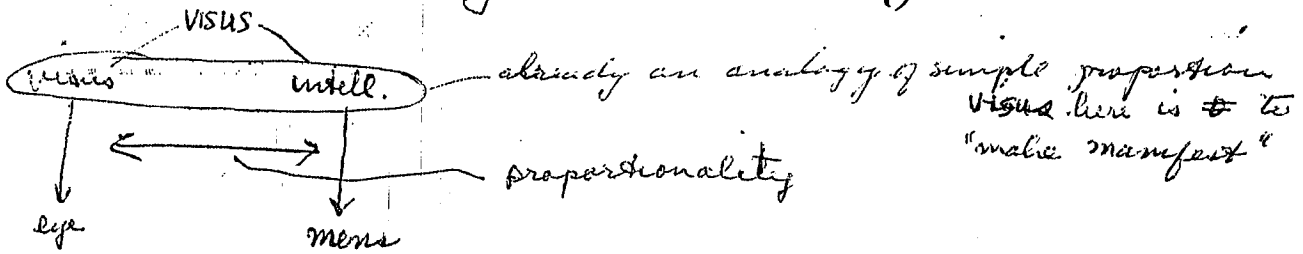 VISUS
visus intell.
already an analogy of simple proportion
visus here is to
"make manifest"
proportionality
eye mens